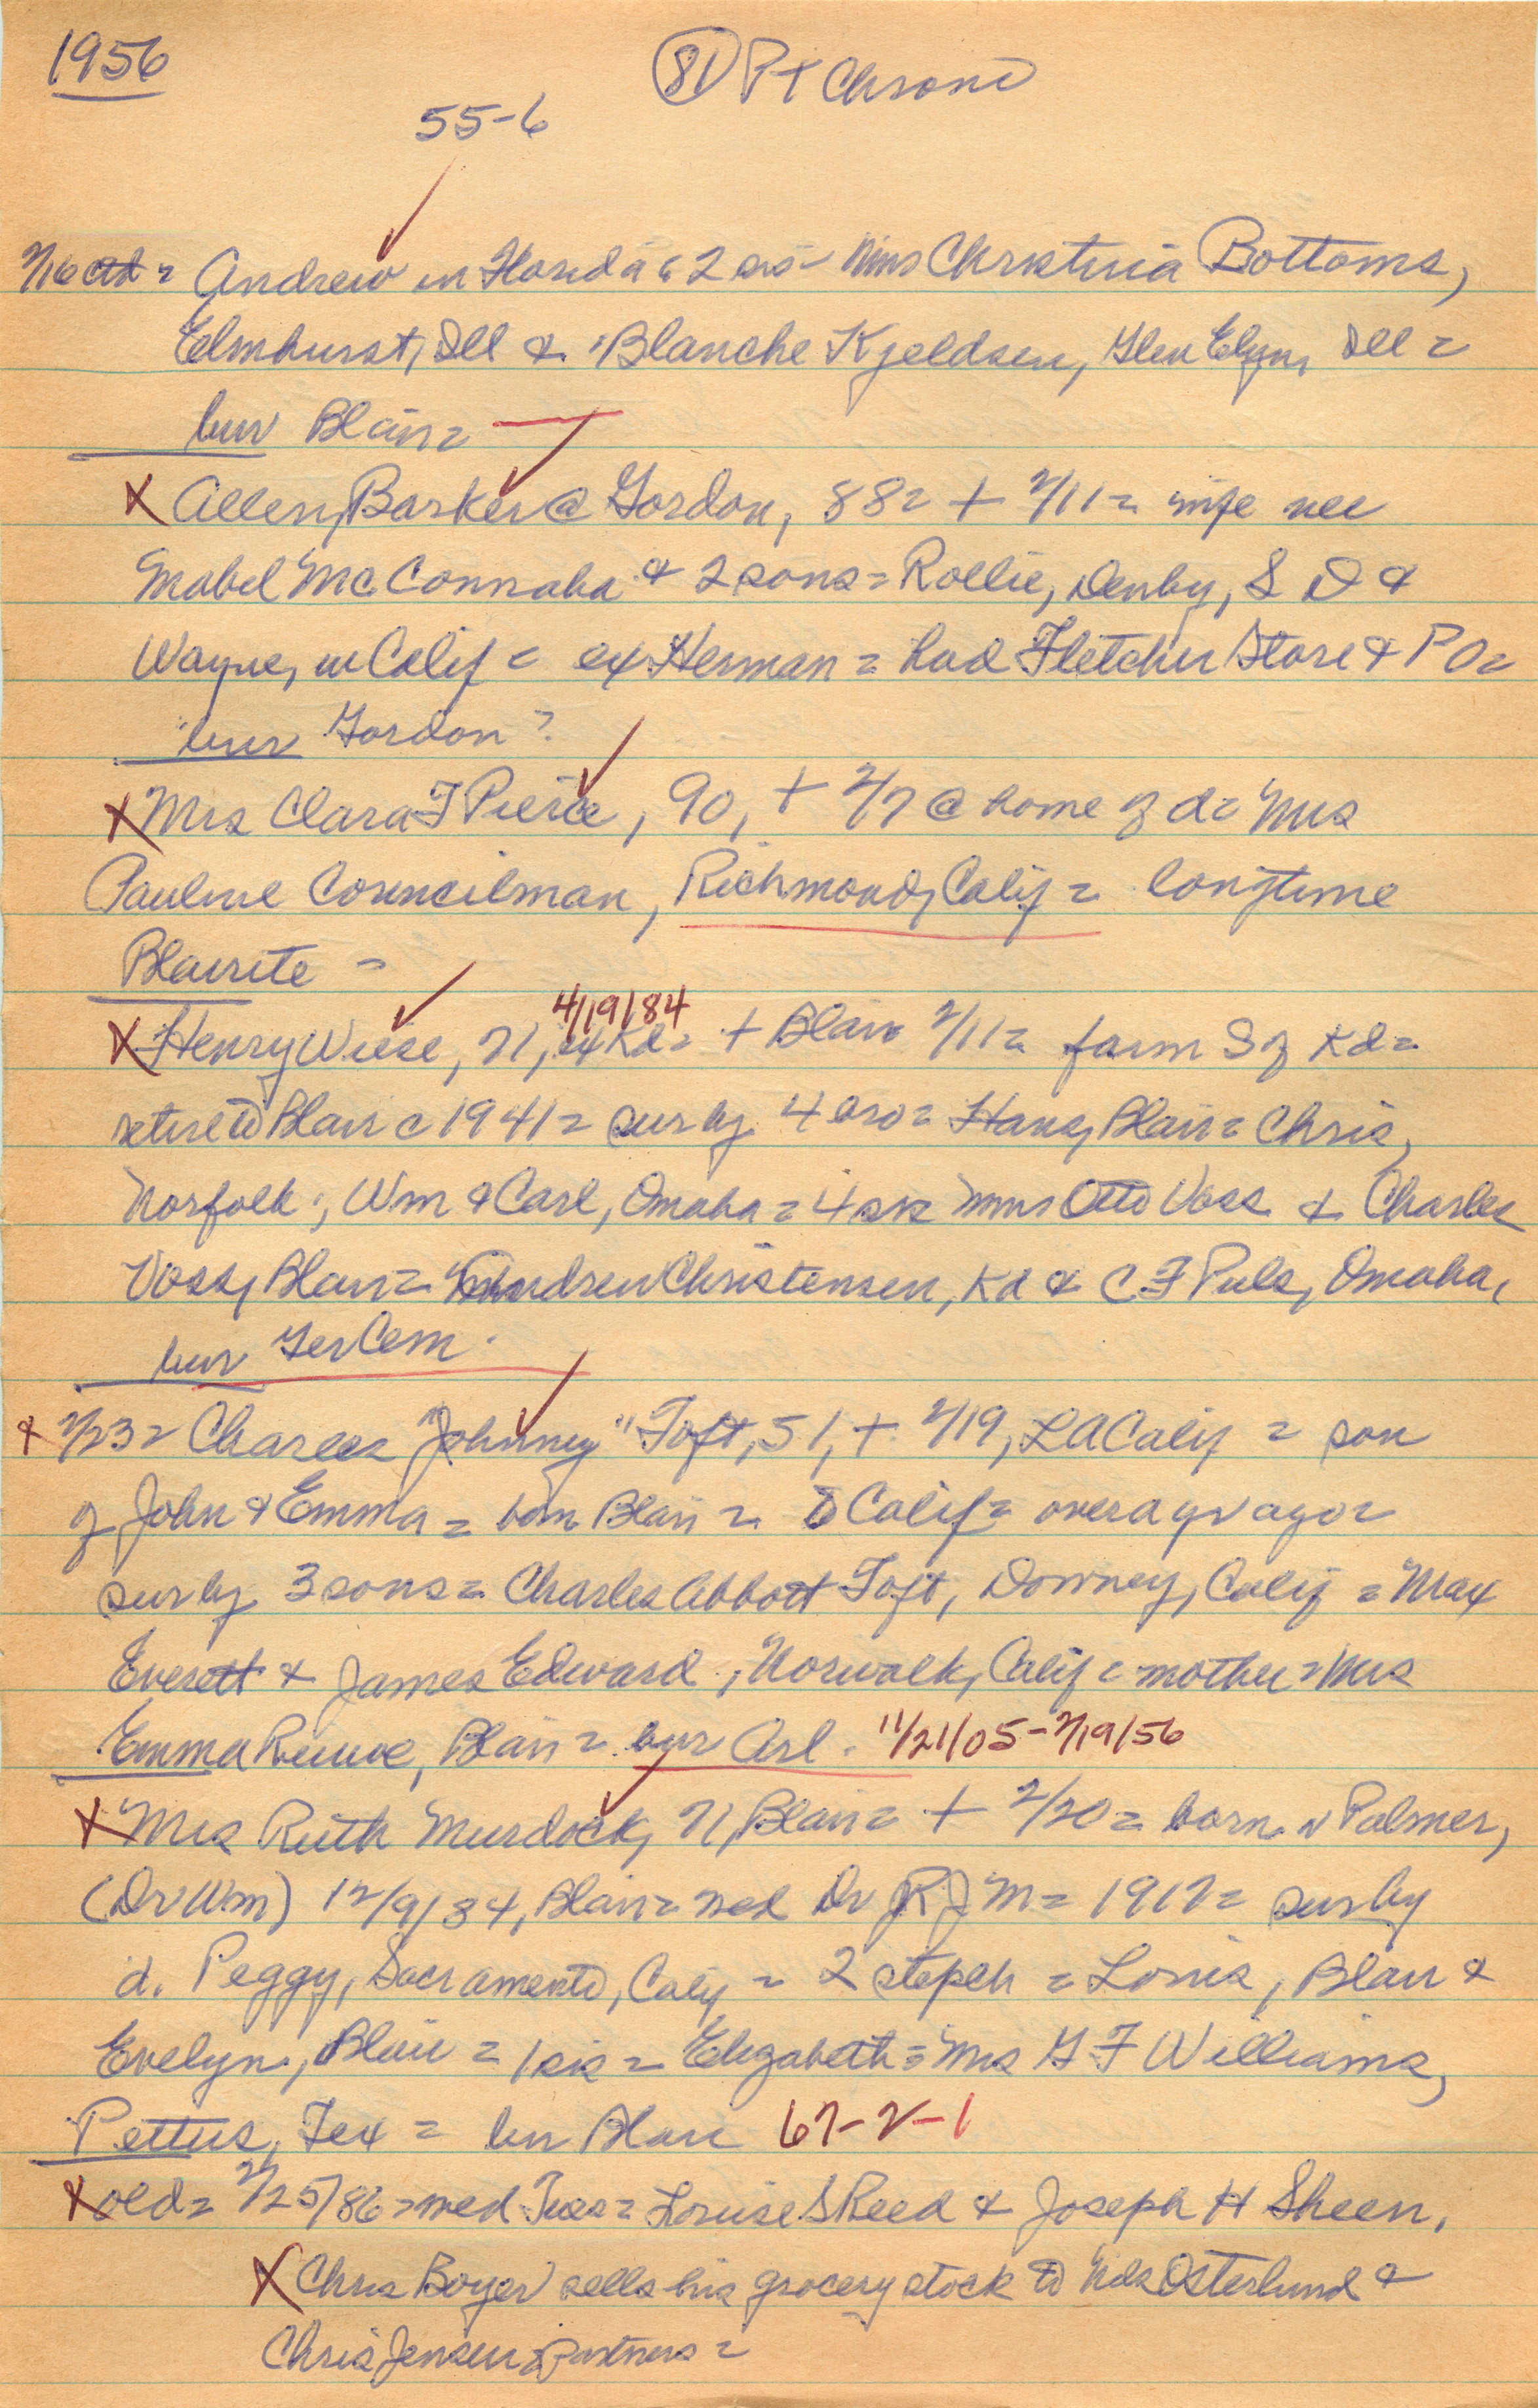 1956
81 Pt Chrono
55-6
2/16 ctd = Andrew in Florida & 2 sis - Mms Christina Bottoms,
Elmhurst, Ill & Blanche Kjeldsen, Glen Elyn, Ill =
bur Blair =
X Allen Barker @ Gordon, 88 = + 2/11 = wife nee
Mabel McConnaha & 2 sons = Rollie, Denby, S D &
Wayne, in Calif = ex Herman = had Fletcher Store & P O =
bur Gordon ?
X Mrs Clara T Pierce, 90, + 2/7 @ home of d = Mrs
Pauline Councilman, Richmond, Calif = longtime
Blairite -
4/19/84
X Henry Wiese, 71, ex Kd = + Blair 2/11 = farm S of Kd =
retired Blair c 1941 = sur by 4 bro = Hans, Blair = Chris,
Norfolk; Wm & Carl, Omaha = 4 sis Mms Otto Voss & Charles
Voss, Blair = Andrew Christensen, Kd & C F Puls, Omaha,
bur Ger Cem.
X 2/23 = Charles "Johnney" Toft, 51, + 2/19, LA Calif = son
of John & Emma = born Blair = to Calif = over a yr ago =
sur by 3 sons = Charles Abbott Toft, Downey, Calif = Max
Everett & James Edward, Norwalk, Calif = mother = Mrs
Emma, Blair = bur Arl. 11/21/05 - 2/19/56
X Mrs Ruth Murdock, 71, Blair = + 2/20 = born n Palmer,
(Dr Wm) 12/9/84, Blair = wed Dr R J M = 1912 = sur by
d. Peggy, Sacramento, Calif = 2 stepch = Louis, Blair &
Evelyn, Blair = 1 sis = Elizabeth = Mrs G F Williams,
Pettus, Tex = bur Blair 67-2-1
X old = 2/25/86 = wed Tues = Louise S Reed & Joseph H Sheen,
X Chris Boyer sells his grocery stock to Nels Osterlund &
Chris Jensen = partners =